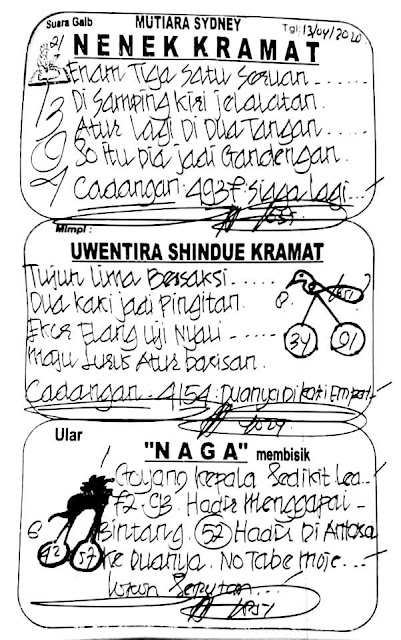 Suara Gaib MUTIARA SYDNEY Tgl: 13/04/2020
NENEK KRAMAT
Enam Tiga Satu Seruan ......
Di Samping kiri jelaratan.
Atur Lagi Di Dua Tangan .....
So itu Dia jadi Gandengan.
Cadangan: 4937: Siaga Lagi...
Mimpi :
UWENTIRA SHINDUE KRAMAT
Tujuh Lima Bersaksi .....
Dua kaki jadi Pingitan.
Ekor Elang Uji Nyali -----
Maju Lurus Atur barisan.
34 91
Cadangan - 4154: Duanya Di kaki Empat
Ular
"NAGA" membisik
Goyang kepala Sedikit
72. 93. Hadir Menggapai -
Bintang. 52 Hadir Di
42 57
Ke Duanya. No Tabe moje...